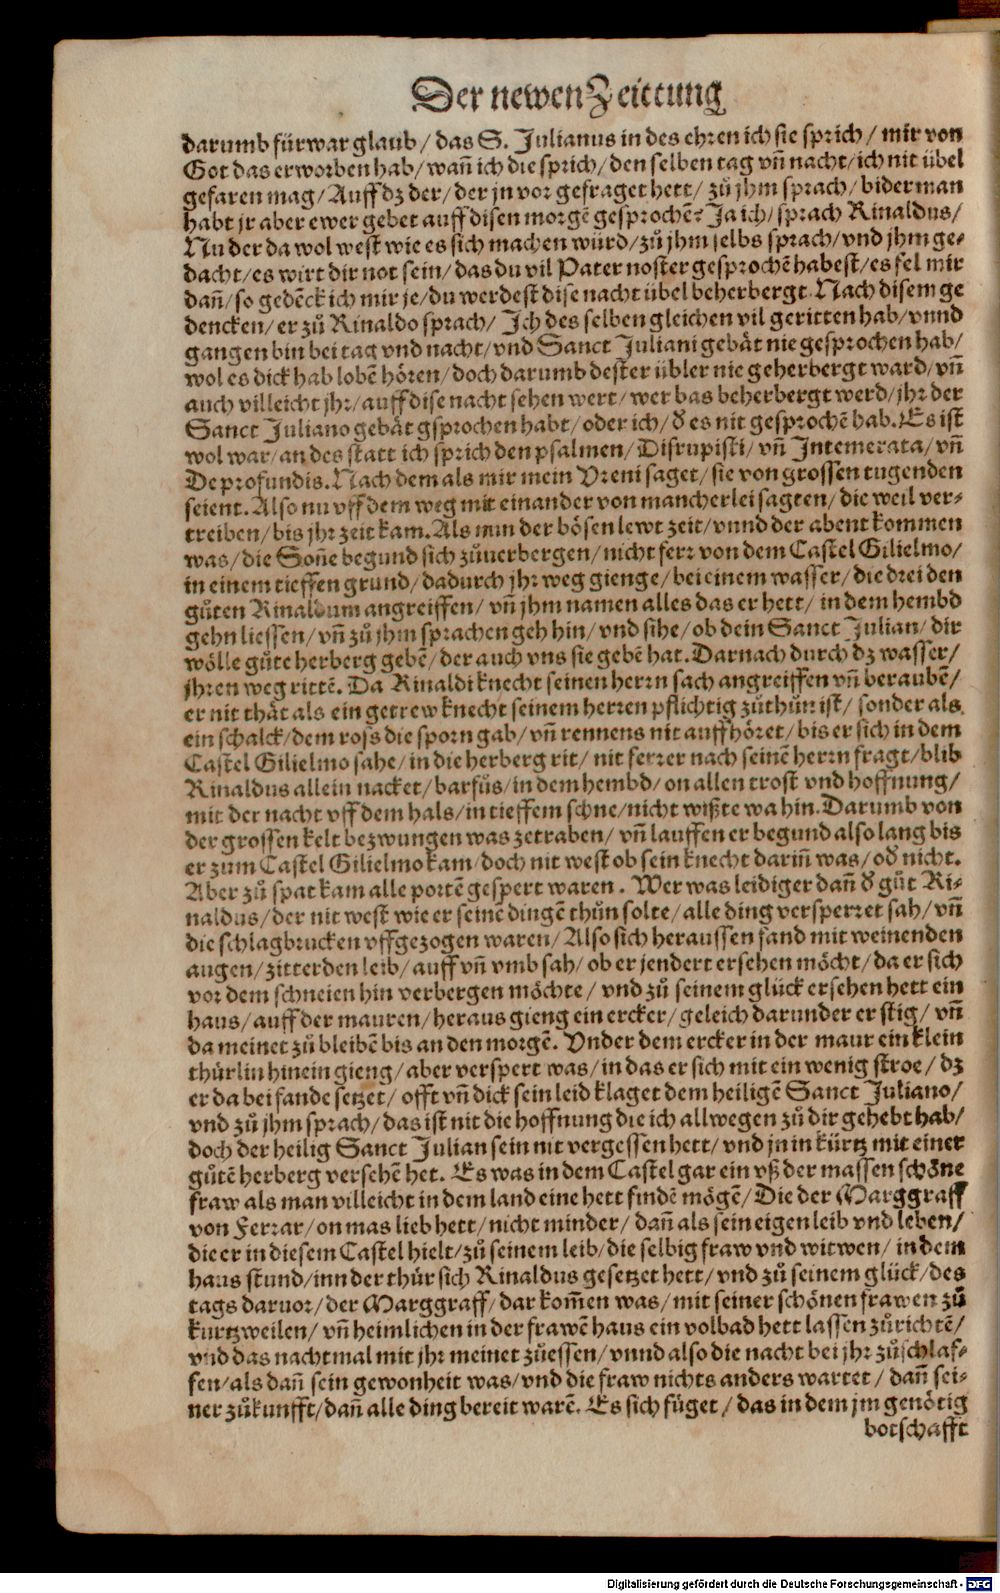 Der newen Zeittung
darumb fürwar glaub / das S. Julianus in des ehren ich sie sprich / mir von
Got das erworben hab / wañ ich die sprich / den selben tag vñ nacht / ich nit übel
gefaren mag / Auff dz der / der jn vor gefraget hett / zů jhm sprach / biderman
habt jr aber ewer gebet auff disen morgẽ gesprochẽ? Ja ich / sprach Rinaldus /
Nu der da wol west wie es sich machen würd / zů jhm selbs sprach / vnd jhm ge-
dacht / es wirt dir not sein / das du vil Pater noster gesprochẽ habest / es fel mir
dañ / so gedẽck ich mir je / du werdest dise nacht übel beherbergt. Nach disem ge
dencken / er zů Rinaldo sprach / Ich des selben gleichen vil geritten hab / vnnd
gangen bin bei tag vnd nacht / vnd Sanct Juliani gebät nie gesprochen hab /
wol es dick hab lobẽ hören / doch darumb dester übler nie geherbergt ward / vñ
auch villeicht jhr / auff dise nacht sehen wert / wer bas beherbergt werd / jhr der
Sanct Juliano gebät gsprochen habt / oder ich / d̕ es nit gesprochẽ hab. Es ist
wol war / an des statt ich sprich den psalmen / Disrupisti / vñ Intemerata / vñ
De profundis. Nach dem als mir mein Vreni saget / sie von grossen tugenden
seient. Also nu vff dem weg mit einander von mancherlei sagten / die weil ver-
treiben / bis jhr zeit kam. Als nun der bösen lewt zeit / vnnd der abent kommen
was / die Soñe begund sich zůuerbergen / nicht ferr von dem Castel Gilielmo /
in einem tieffen grund / dadurch jhr weg gienge / bei einem wasser / die drei den
gůten Rinaldum angreiffen / vñ jhm namen alles das er hett / in dem hembd
gehn liessen / vñ zů jhm sprachen geh hin / vnd sihe / ob dein Sanct Julian / dir
wölle gůte herberg gebẽ / der auch vns sie gebẽ hat. Darnach durch dz wasser /
jhren weg rittẽ. Da Rinaldi knecht seinen herrn sach angreiffen vñ beraubẽ /
er nit thät als ein getrew knecht seinem herren pflichtig zůthůn ist / sonder als
ein schalck / dem ross die sporn gab / vñ rennens nit auffhöret / bis er sich in dem
Castel Gilielmo sahe / in die herberg rit / nit ferrer nach seinẽ herrn fragt / blib
Rinaldus allein nacket / barfůs / in dem hembd / on allen trost vnd hoffnung /
mit der nacht vff dem hals / in tieffem schne / nicht wißte wa hin. Darumb von
der grossen kelt bezwungen was zetraben / vñ lauffen er begund also lang bis
er zum Castel Gilielmo kam / doch nit west ob sein knecht dariñ was / od̕ nicht.
Aber zů spat kam alle portẽ gespert waren. Wer was leidiger dañ d̕ gůt Ri-
naldus / der nit west wie er seinẽ dingẽ thůn solte / alle ding versperret sah / vñ
die schlagbrucken vffgezogen waren / Also sich heraussen fand mit weinenden
augen / zitterden leib / auff vñ vmb sah / ob er jendert ersehen möcht / da er sich
vor dem schneien hin verbergen möchte / vnd zů seinem glück ersehen hett ein
haus / auff der mauren / heraus gieng ein ercker / geleich darunder er stig / vñ
da meinet zů bleibẽ bis an den morgẽ. Vnder dem ercker in der maur ein klein
thürlin hinein gieng / aber verspert was / in das er sich mit ein wenig stroe / dz
er da bei fande setzet / offt vñ dick sein leid klaget dem heiligẽ Sanct Juliano /
vnd zů jhm sprach / das ist nit die hoffnung die ich allwegen zů dir gehebt hab /
doch der heilig Sanct Julian sein nit vergessen hett / vnd jn in kürtz mit einer
gůtẽ herberg versehẽ het. Es was in dem Castel gar ein vß der massen schöne
fraw als man villeicht in dem land eine hett findẽ mögẽ / Die der Marggraff
von Ferrar / on mas lieb hett / nicht minder / dañ als sein eigen leib vnd leben /
die er in diesem Castel hielt / zů seinem leib / die selbig fraw vnd witwen / in dem
haus stund / inn der thür sich Rinaldus gesetzet hett / vnd zů seinem glück / des
tags daruor / der Marggraff / dar kom̃en was / mit seiner schönen frawen zů
kurtzweilen / vñ heimlichen in der frawẽ haus ein volbad hett lassen zůrichtẽ /
vnd das nachtmal mit jhr meinet zůessen / vnnd also die nacht bei jhr zůschlaf-
fen / als dañ sein gewonheit was / vnd die fraw nichts anders wartet / dañ sei-
ner zůkunfft / dañ alle ding bereit warẽ. Es sich füget / das in dem jm genötig
botschafft
Digitalisierung gefördert durch die Deutsche Forschungsgemeinschaft - DFG